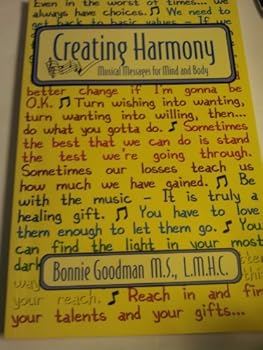 Even in the worst of times... we
always have choices. ♫ We need to
get back to basic values - If we
Creating Harmony
Musical Messages for Mind and Body
better change if I'm gonna be
O.K. ♫ Turn wishing into wanting,
turn wanting into willing, then...
do what you gotta do. ♪ Sometimes
the best that we can do is stand
the test we're going through.
Sometimes our losses teach us
how much we have gained. ♫ Be
with the music - It is truly a
healing gift. ♪ You have to love
them enough to let them go. ♪ You
can find the light in your most
dark
Bonnie Goodman M.S., L.M.H.C.
your reach. ♪ Reach in and fin
your talents and your gifts...